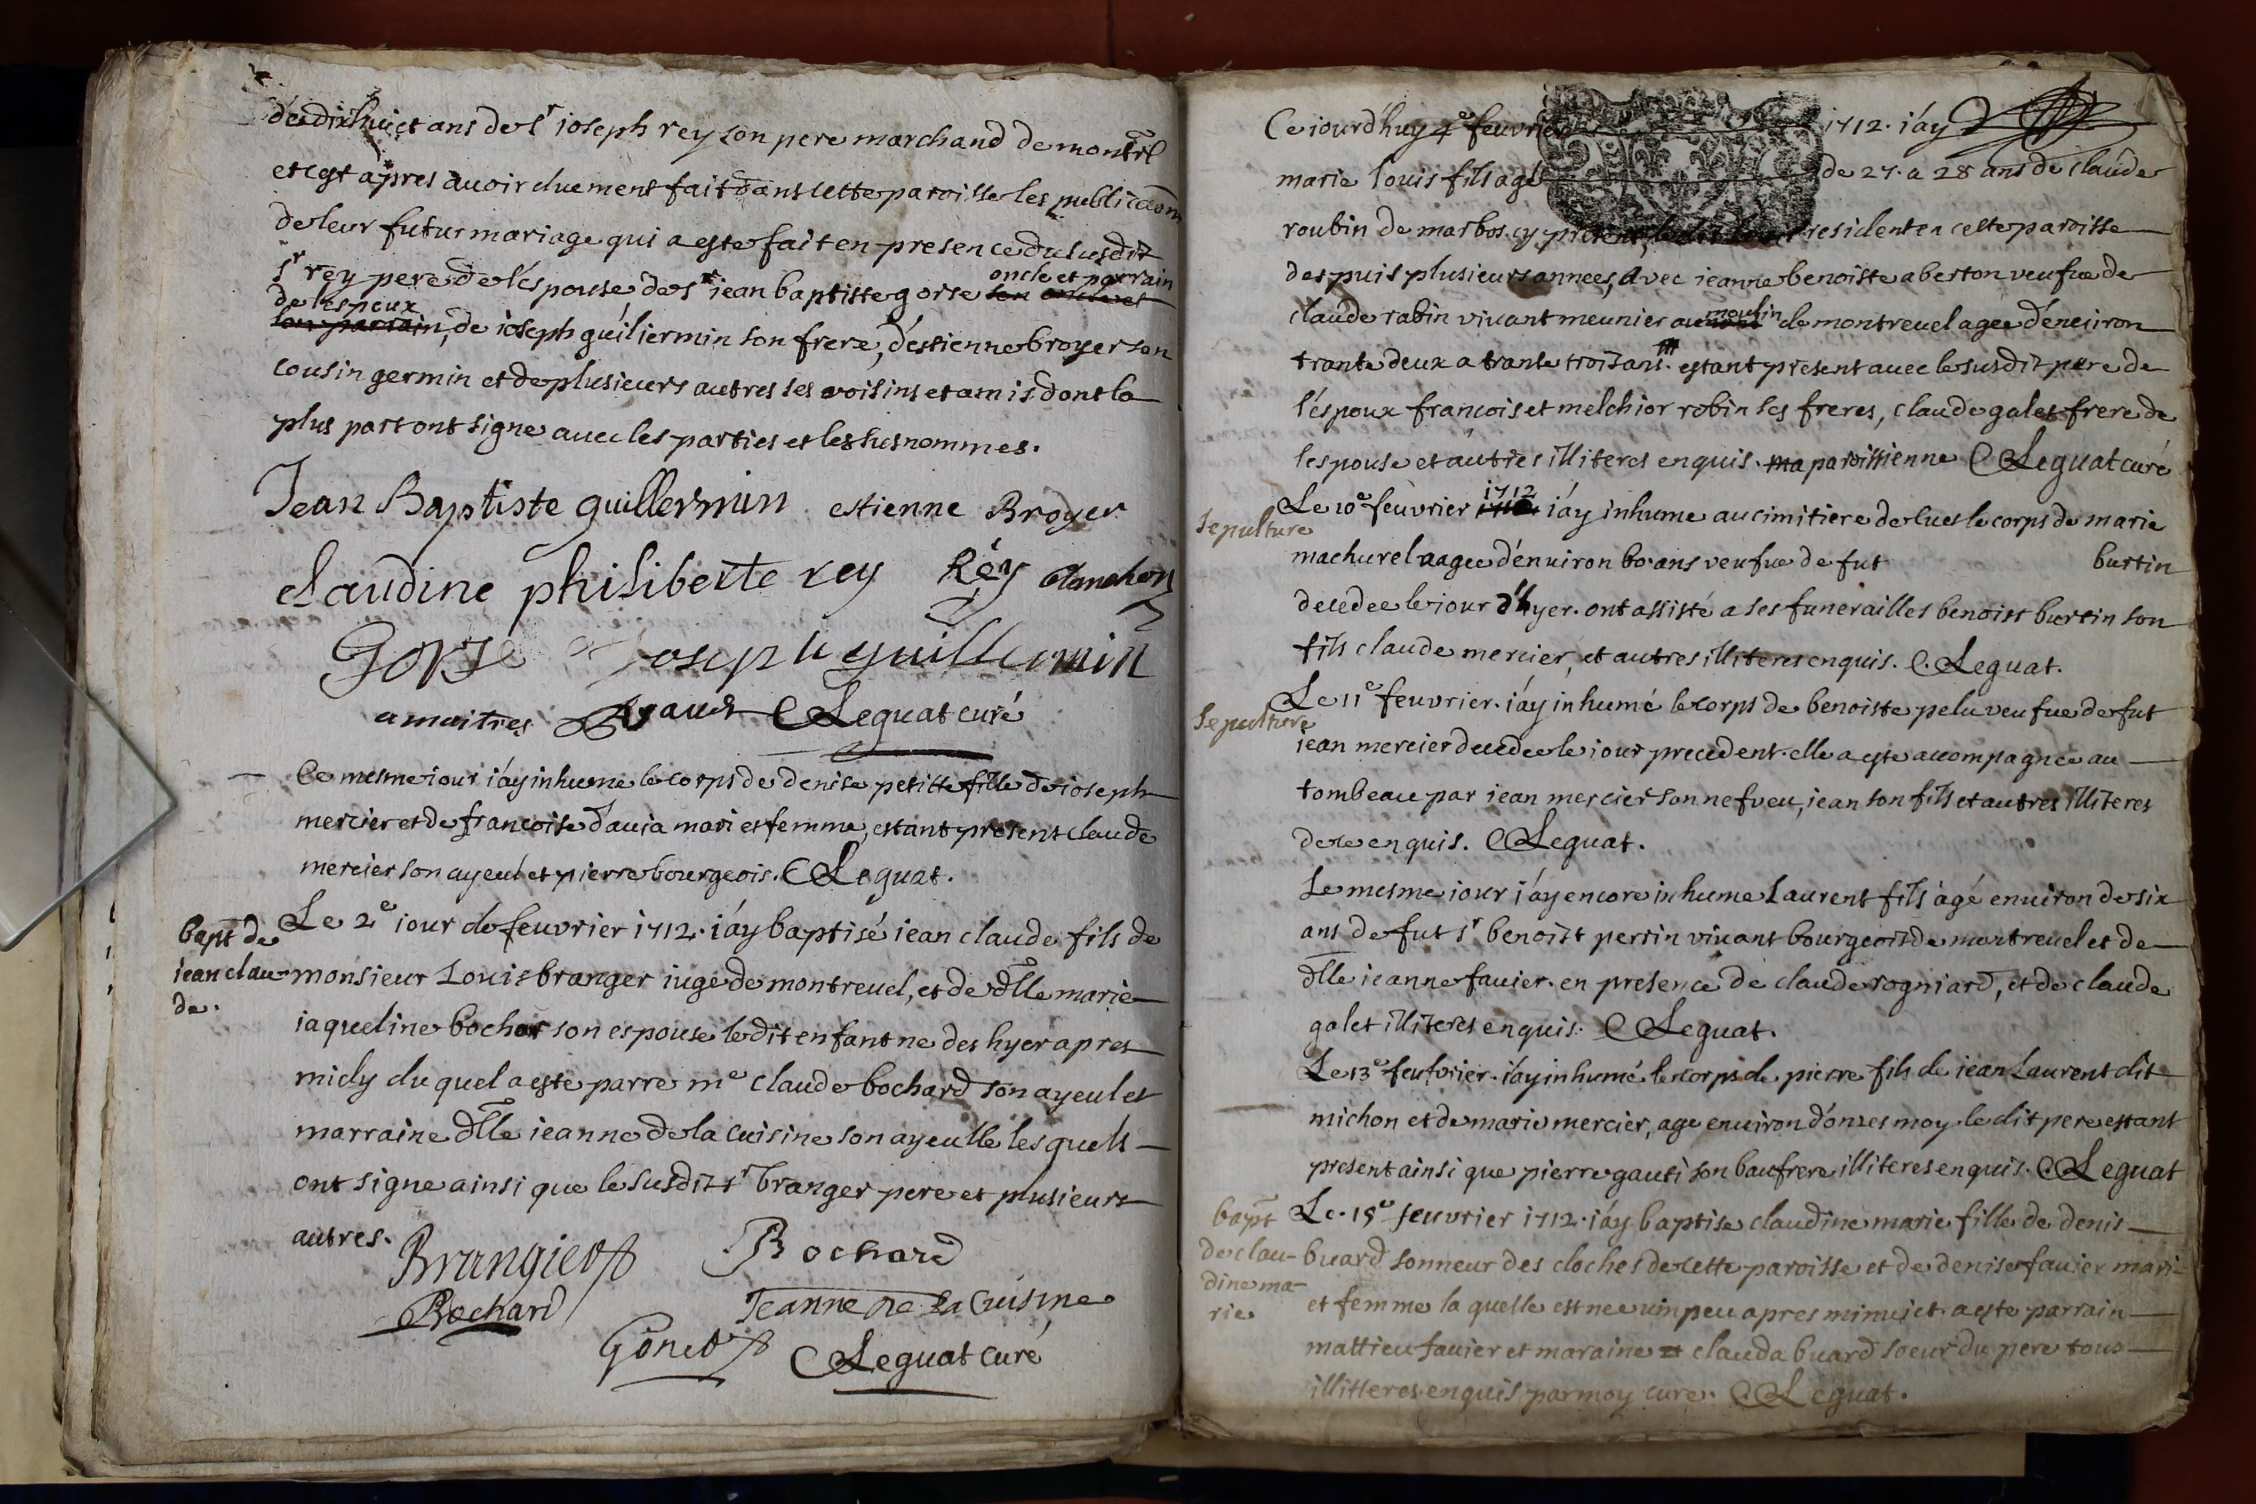 de dixhuict ans de sr ioseph rey son pere marchand de montrl
et cest apres auoir duement fait dans cette paroisse les publicaõn
de leur futur mariage qui a este fait en presence du susdit
sr rey pere de l'espouse de sr iean baptiste gorse son oncle et oncle et parrain
de l'espoux
son parrain, de ioseph guiliermin son frere, d'estienne broyer son
cousin germin et de plusieurs autres ses voisins et amis dont la
plus part ont signe auec les parties et les susnommes.
Jean Baptiste guillermin estienne Broyer
claudine philiberte rey Réy
Gorse Joseph guillermin
C Leguat curé
Ce mesme iour i'ay inhume le corps de denise petitte fille de ioseph
mercier et de francoise d'auia mari et femme, estant present claude
mercier son ayeul et pierre bourgeois. C Leguat.
bapt de
iean clau-
de.
Le 2e iour de feuvrier 1712. i'ay baptisé iean claude fils de
monsieur Louis branger iuge de montreuel, et de dlle marie
iaqueline bochar son espouse ledit enfant ne des hyer apres
midy du quel a este parre me claude bochard son ayeul et
marraine dlle ieanne de la cuisine son ayeulle lesquels
ont signe ainsi que le susdit sr branger pere et plusieurs
autres.
Brangier Bochard
Bochard Jeanne De La Cuisine
C Leguat curé
Ce iourd'huy 4e feuvrier 1712. i'ay
marie louis fils agé de 27. a 28 ans de claude
roubin de marbos cy present, resident en cette paroisse
despuis plusieurs annees, avec ieanne benoiste aberton veufue de
claude rabin viuant meunier au moulin de montreuel agee d'enuiron
trante deux a trante trois ans. estant present auec le susdit pere de
l'espoux francois et melchior robin ses freres, claude galet frere de
lespouse et autres illiteres enquis. ma paroissienne C Leguat curé
sepulture
Le 10e feuvrier 1712 i'ay inhume au cimitiere de lues le corps de marie
machurel aagee d'enuiron 60 ans veufue de fut burtin
decedee le iour d'hyer. ont assisté a ses funerailles benoist burtin son
fils claude mercier, et autres illiteres enquis. C. Leguat.
sepulture
Le 11e feuvrier. i'ay inhumé le corps de benoiste pelu veufue de fut
iean mercier decedee le iour precedent. elle a este accompagnee au
tombeau par iean mercier son nefueu, iean son fils et autres illiteres
de ce enquis. C Leguat.
Le mesme iour i'ay encore inhume Laurent fils âgé enuiron de six
ans de fut sr benoist perrin viuant bourgeois de montreuel et de
dlle ieanne fauier. en presence de claude rogniard, et de claude
galet illiteres enquis. C Leguat.
Le 13e feuvrier. i'ay inhumé le corps de pierre fils de iean Laurent dit
michon et de marie mercier, age enuiron d'onzes moy. ledit pere estant
present ainsi que pierre gauti son baufrere illiteres enquis. C Leguat
bapt
de clau-
dine ma-
rie
Le. 15e feuvrier 1712. i'ay baptise claudine marie fille de denis
buard sonneur des cloches de cette paroisse et de denise fauier mari
et femme la quelle est nee uin peu apres minuict. a este parrain
mattieu fauier et maraine clauda buard soeur du pere tous
illitteres enquis par moy cure. C Leguat.